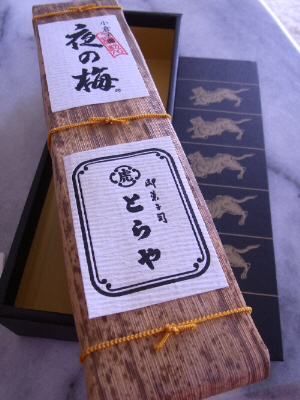 小倉羊羹
夜の梅
虎
御菓子司
とらや